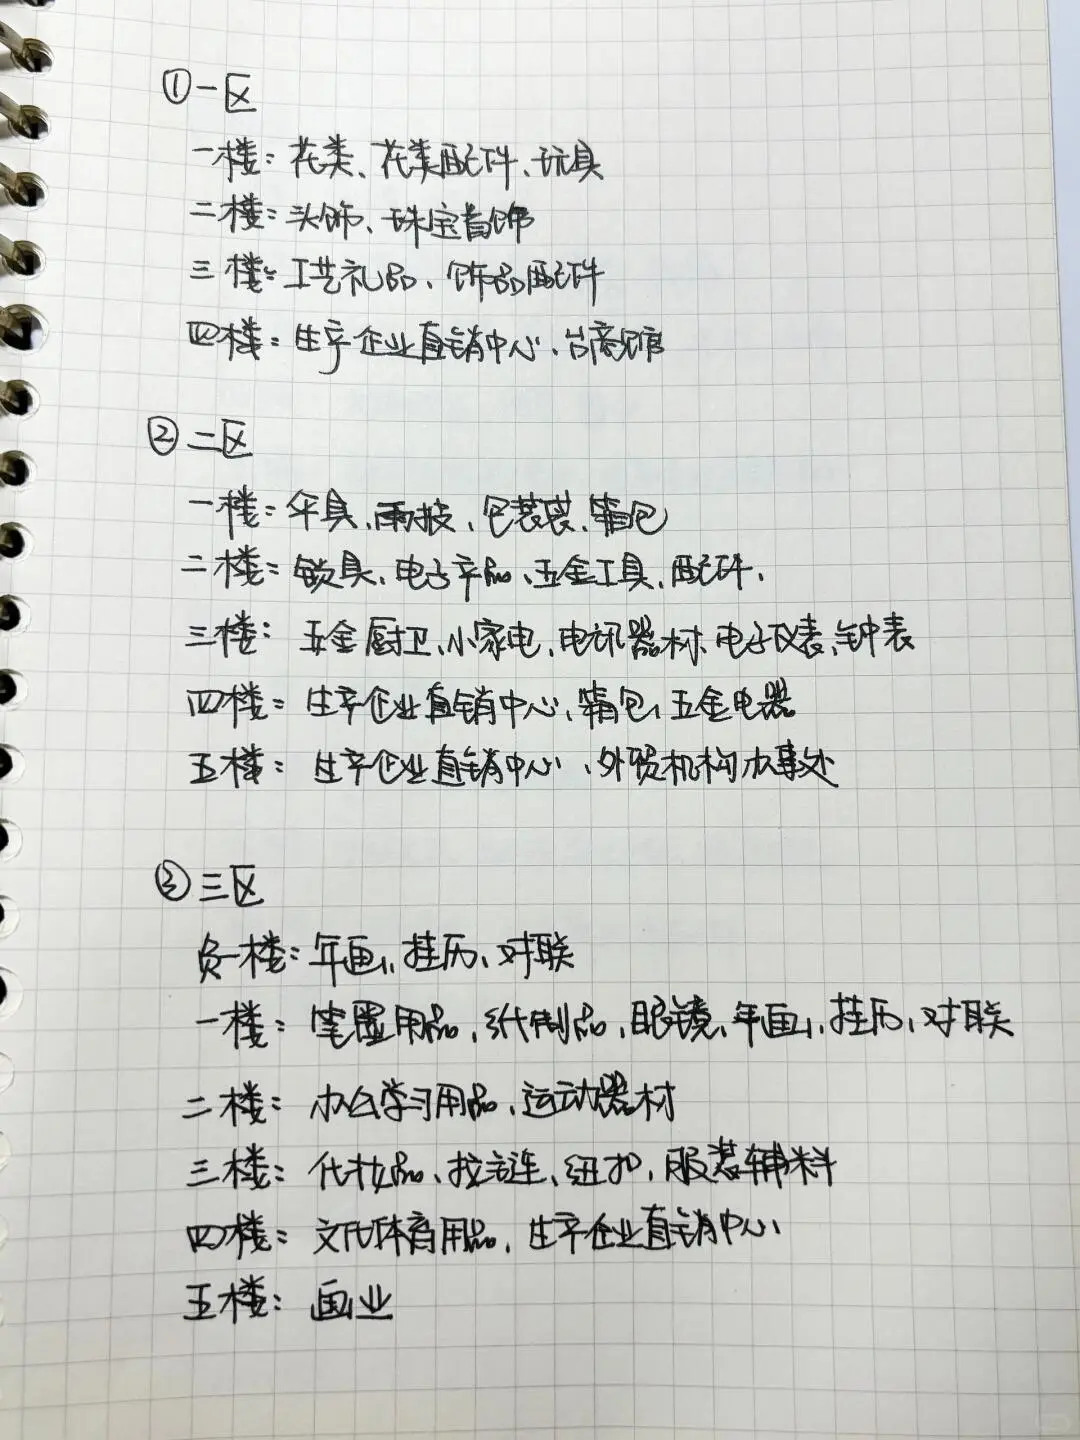 ①一区
一楼：花类、花类配件、玩具
二楼：头饰、珠宝首饰
三楼：工艺礼品、饰品配件
四楼：生产企业直销中心、台商馆
②二区
一楼：伞具、雨披、包装袋、箱包
二楼：锁具、电子产品、五金工具、配件、
三楼：五金厨卫、小家电、电讯器材、电子仪表、钟表
四楼：生产企业直销中心、箱包、五金电器
五楼：生产企业直销中心、外贸机构办事处
③三区
负一楼：年画、挂历、对联
一楼：笔墨用品、纸制品、眼镜、年画、挂历、对联
二楼：办公学习用品、运动器材
三楼：化妆品、拉链、纽扣、服装辅料
四楼：文化体育用品、生产企业直销中心、
五楼：画业